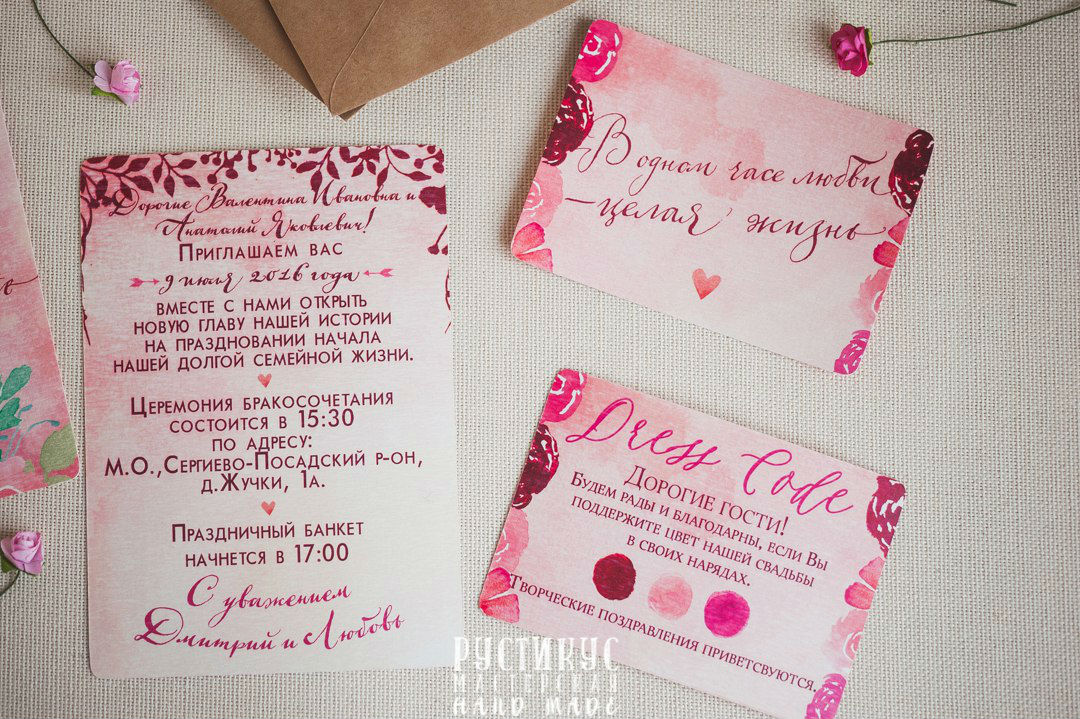 Дорогие Валентина Ивановна и
Анатолий Яковлевич!
Приглашаем вас
9 июля 2016 года
вместе с нами открыть
новую главу нашей истории
на праздновании начала
нашей долгой семейной жизни.
Церемония бракосочетания
состоится в 15:30
по адресу:
М.О.,Сергиево-Посадский р-он,
д.Жучки, 1а.
Праздничный банкет
начнется в 17:00
С уважением
Дмитрий и Любовь
В одном часе любви
–целая жизнь
Dress Code
Дорогие гости!
Будем рады и благодарны, если Вы
поддержите цвет нашей свадьбы
в своих нарядах.
Творческие поздравления приветсвуются.
РУСТИКУС
МАСТЕРСКАЯ
HAND MADE